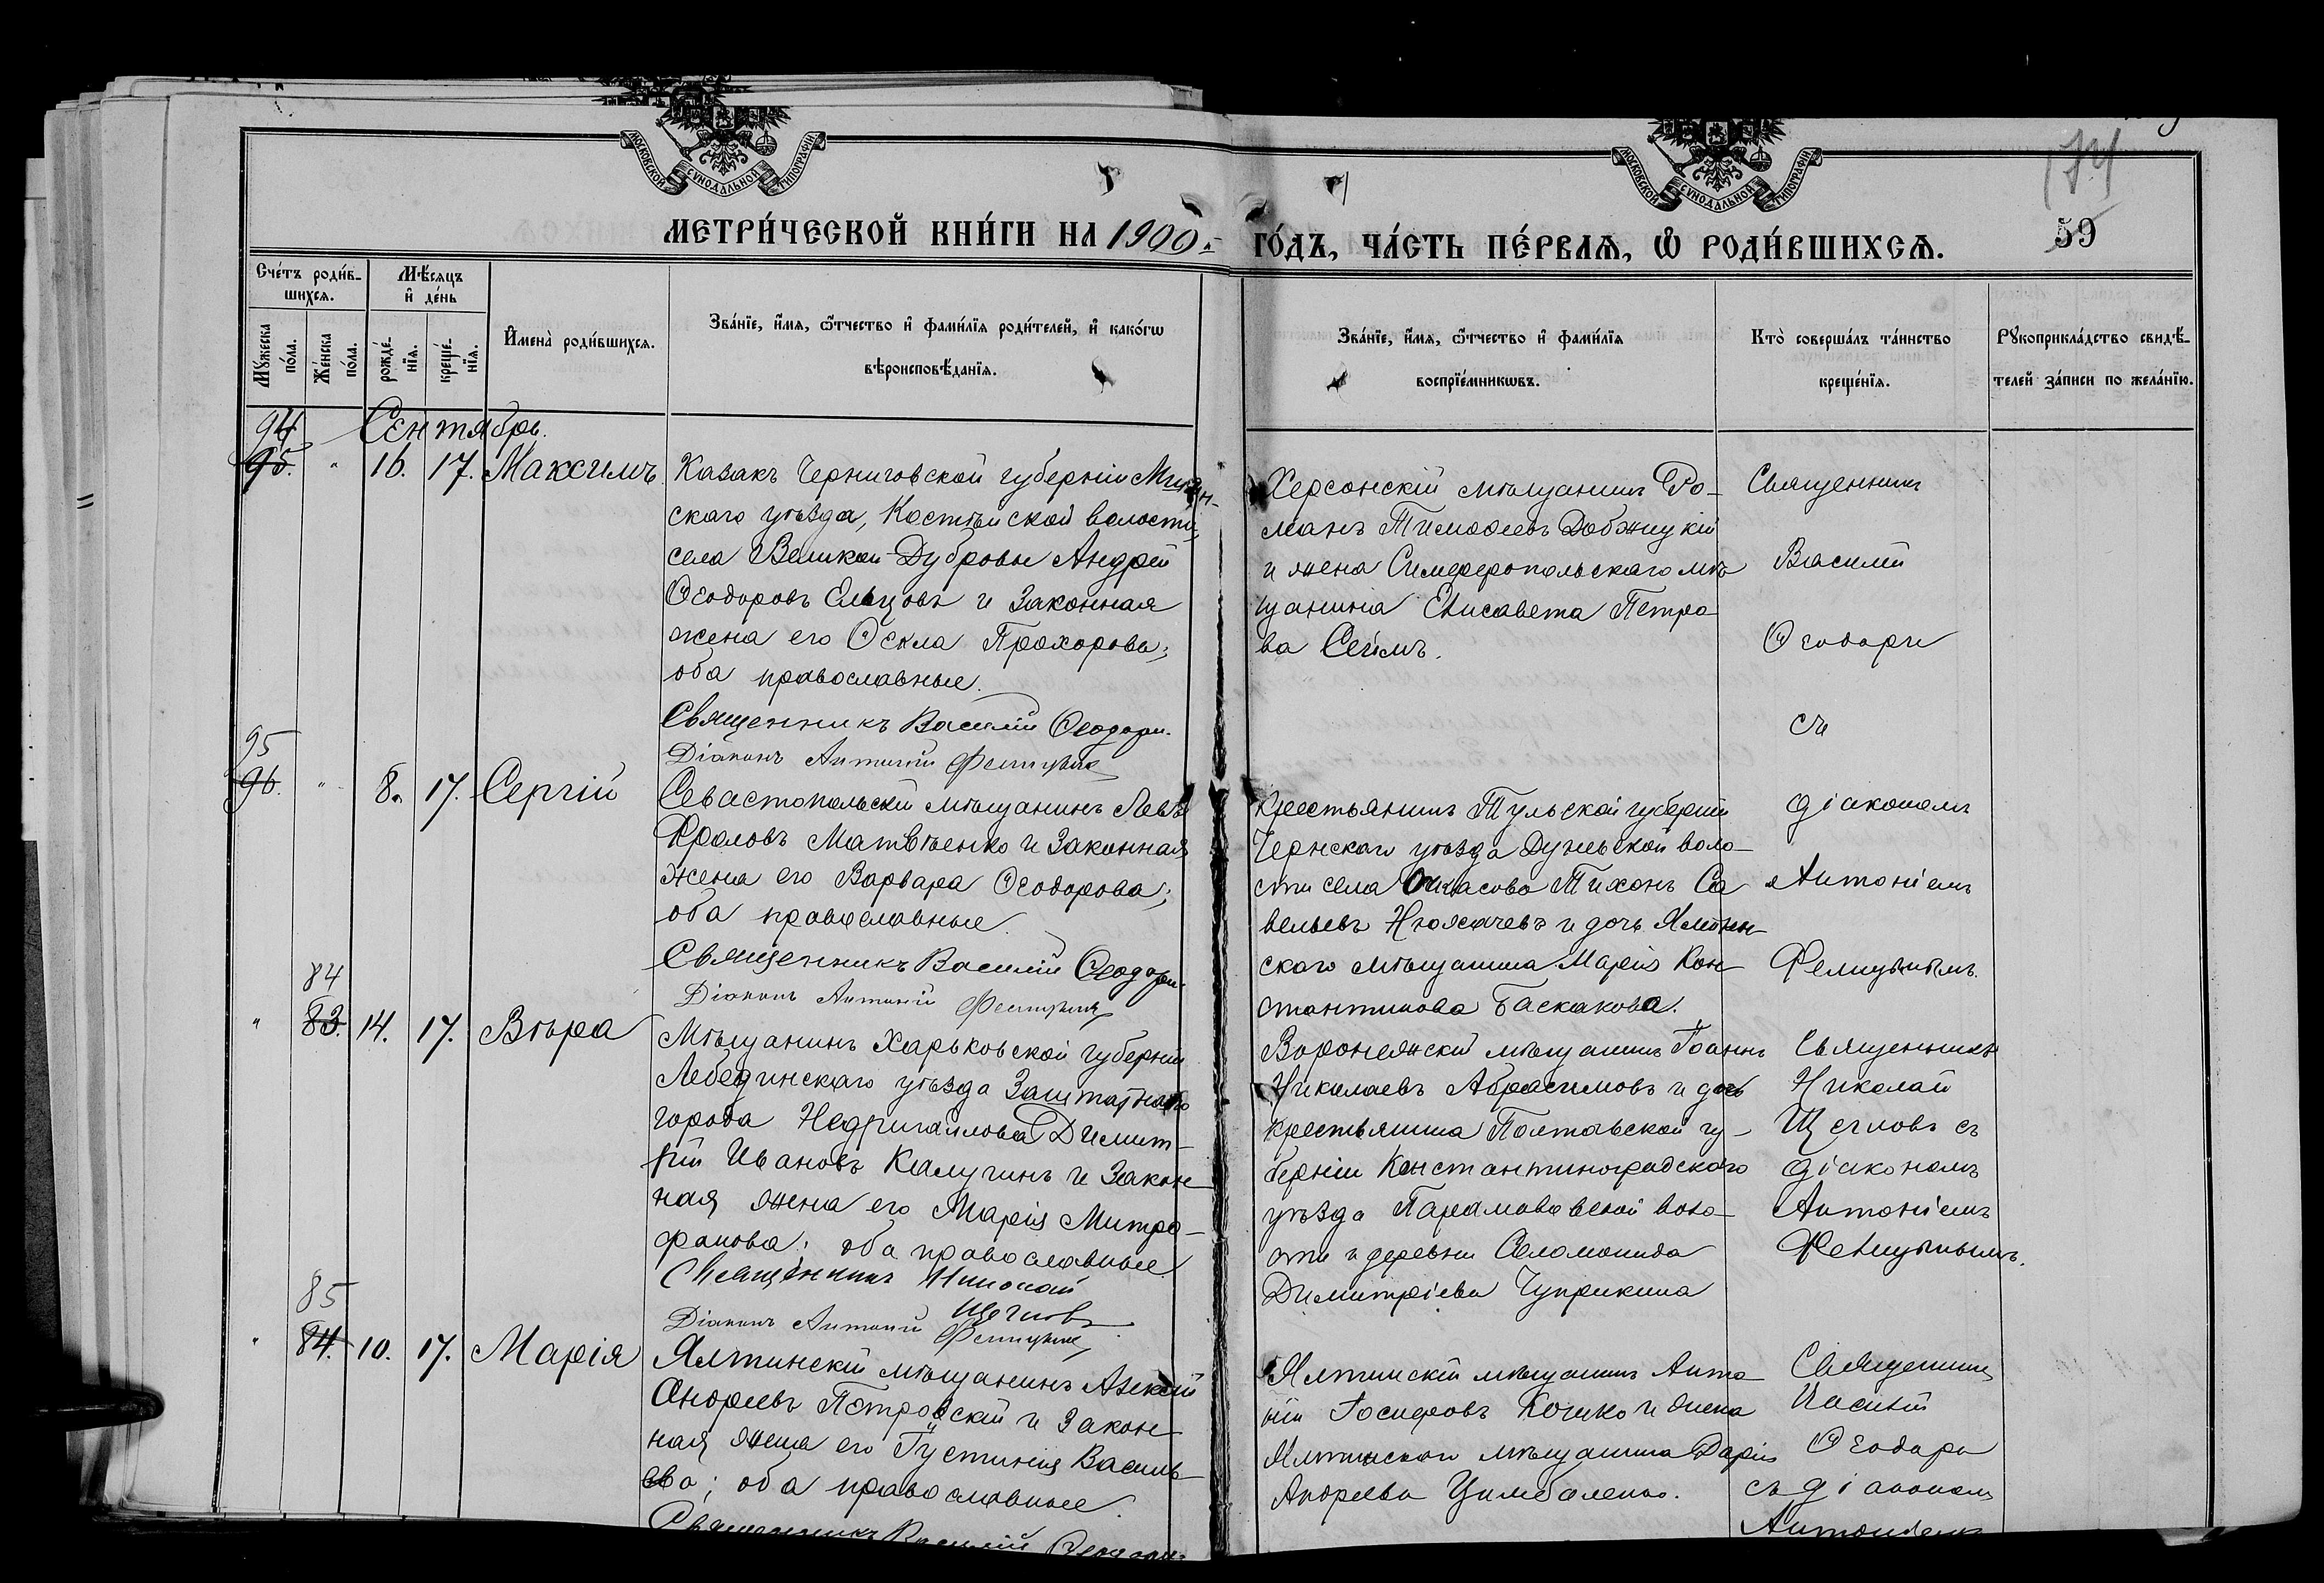 МОСКОВСКОЙ СѴНОДАЛЬНОЙ ТИПОГРАФІИ.
МОСКОВСКОЙ СѴНОДАЛЬНОЙ ТИПОГРАФІИ.
МЕТРИ́ЧЕСКОЙ КНИ́ГИ НА 1900
ГО́ДЪ, ЧА́СТЬ ПЕ́РВАѦ, Ѽ РОДИ́ВШИХСѦ.
59
Сче́тъ роди́в-
шихсѧ.
Мѣ́сѧцъ
и҆ де́нь
Мꙋ́жеска
по́ла.
Же́нска
по́ла.
рожде́-
нїѧ.
креще́-
нїѧ.
И҆мена̀ роди́вшихсѧ.
Зва́нїе, и҆́мѧ, ѻ҆́тчество и҆ фами́лїѧ роди́телей, и҆ како́гѡ
вѣроисповѣ́данїѧ.
Зва́нїе, и҆́мѧ, ѻ҆́тчество и҆ фами́лїѧ
воспрїе́мникѡвъ.
Кто̀ соверша́лъ та́инство
креще́нїѧ.
Рꙋкоприкла́дство свидѣ́-
телей за́писи по жела́нїю.
Сентябрь.
94
95. " 16. 17. Максимъ
Казакъ Черниговской губерніи
скаго уѣзда, волости,
села Великой Дубровы Андрей
Ѳеодоровъ Ельцовъ и законная
жена его Ѳекла Прохорова;
оба православные.
Священникъ Василій Ѳеодори
Діаконъ Антоній
Херсонскій мѣщанинъ Ро-
манъ Тимоѳеевъ Добжицкій
и жена Симферопольскаго мѣ
щанина Елисавета Петро
ва Сеймъ.
Священникъ
Василій
Ѳеодори
съ
діакономъ
Антоніемъ
95
96. " 8. 17. Сергій
Севастопольскій мѣщанинъ Левъ
Фроловъ Матвѣенко и законная
жена его Варвара Ѳеодорова;
оба православные.
Священникъ Василій Ѳеодори
Діаконъ Антоній
Крестьянинъ Тульской губерніи
Чернскаго уѣзда воло-
сти села Тихонъ Са
вельевъ и дочь Ялтин-
скаго мѣщанина Марія Кон-
стантинова Баскакова.
84
" 83. 14. 17. Вѣра
Мѣщанинъ Харьковской губерніи
Лебединскаго уѣзда заштатнаго
города Недригайлова Димит-
рій Ивановъ Калугинъ и закон-
ная жена его Марія Митро-
фанова; оба православные.
Священникъ Николай
Щегловъ
Діаконъ Антоній
Воронежскій мѣщанинъ Іоаннъ
Николаевъ Абрасимовъ и дочь
крестьянина Полтавской гу-
берніи Константиноградскаго
уѣзда воло-
сти и деревни Соломонида
Димитріева Чуприкина
Священникъ
Николай
Щегловъ съ
діакономъ
Антоніемъ
85
" 84. 10. 17. Марія
Ялтинскій мѣщанинъ Алексѣй
Андреевъ Петровскій и закон-
ная жена его Іустинія Василь-
ева; оба православные.
Священникъ Василій Ѳеодори
Ялтинскій мѣщанинъ Анто
ній Іосифовъ и жена
Ялтинскаго мѣщанина Дарія
Андреева Цимбаленко.
Священникъ
Василій
Ѳеодори
съ діакономъ
Антоніемъ